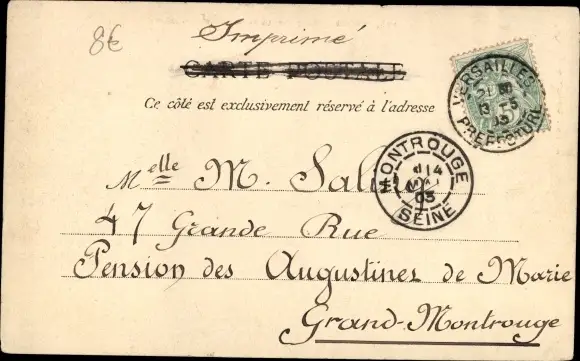 8€
Imprimé
CARTE POSTALE
Ce côté est exclusivement réservé à l'adresse
VERSAILLES
13 - 5
03
PRÉFECTURE
MONTROUGE
14
03
SEINE
Melle M.
47 Grande Rue
Pension des Augustines de Marie
Grand-Montrouge